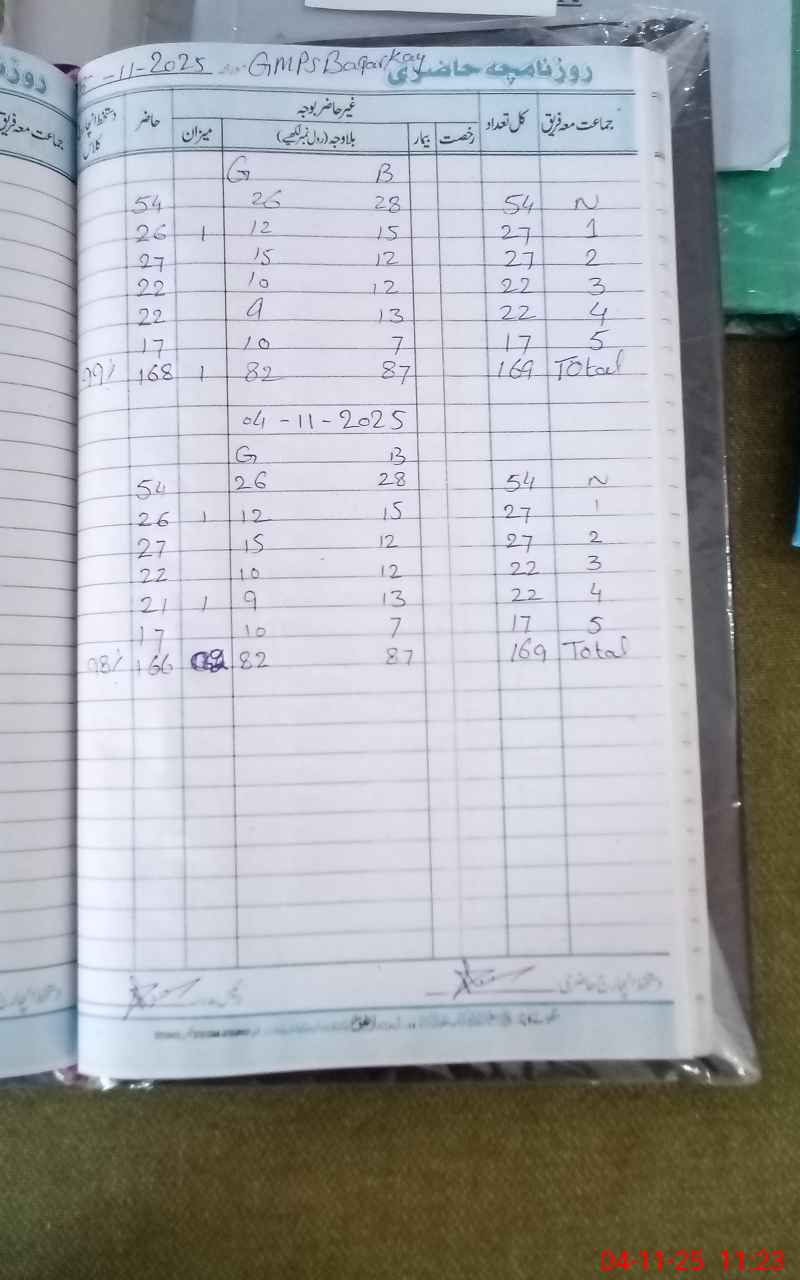 -11-2025 GMPS Baqarkay روزنامچہ حاضری
جماعت معہ فریق کل تعداد غیر حاضر بوجہ حاضر
رخصت بیمار بلاوجہ (رول نمبر لکھیے) میزان
G B
54 26 28 54 N
26 1 12 15 27 1
27 15 12 27 2
22 10 12 22 3
22 9 13 22 4
17 10 7 17 5
99% 168 1 82 87 169 Total
04-11-2025
G B
54 26 28 54 N
26 1 12 15 27 1
27 15 12 27 2
22 10 12 22 3
21 1 9 13 22 4
17 10 7 17 5
98% 166 82 87 169 Total
دستخط انچارج حاضری
جماعت معہ فریق
04-11-25 11:23